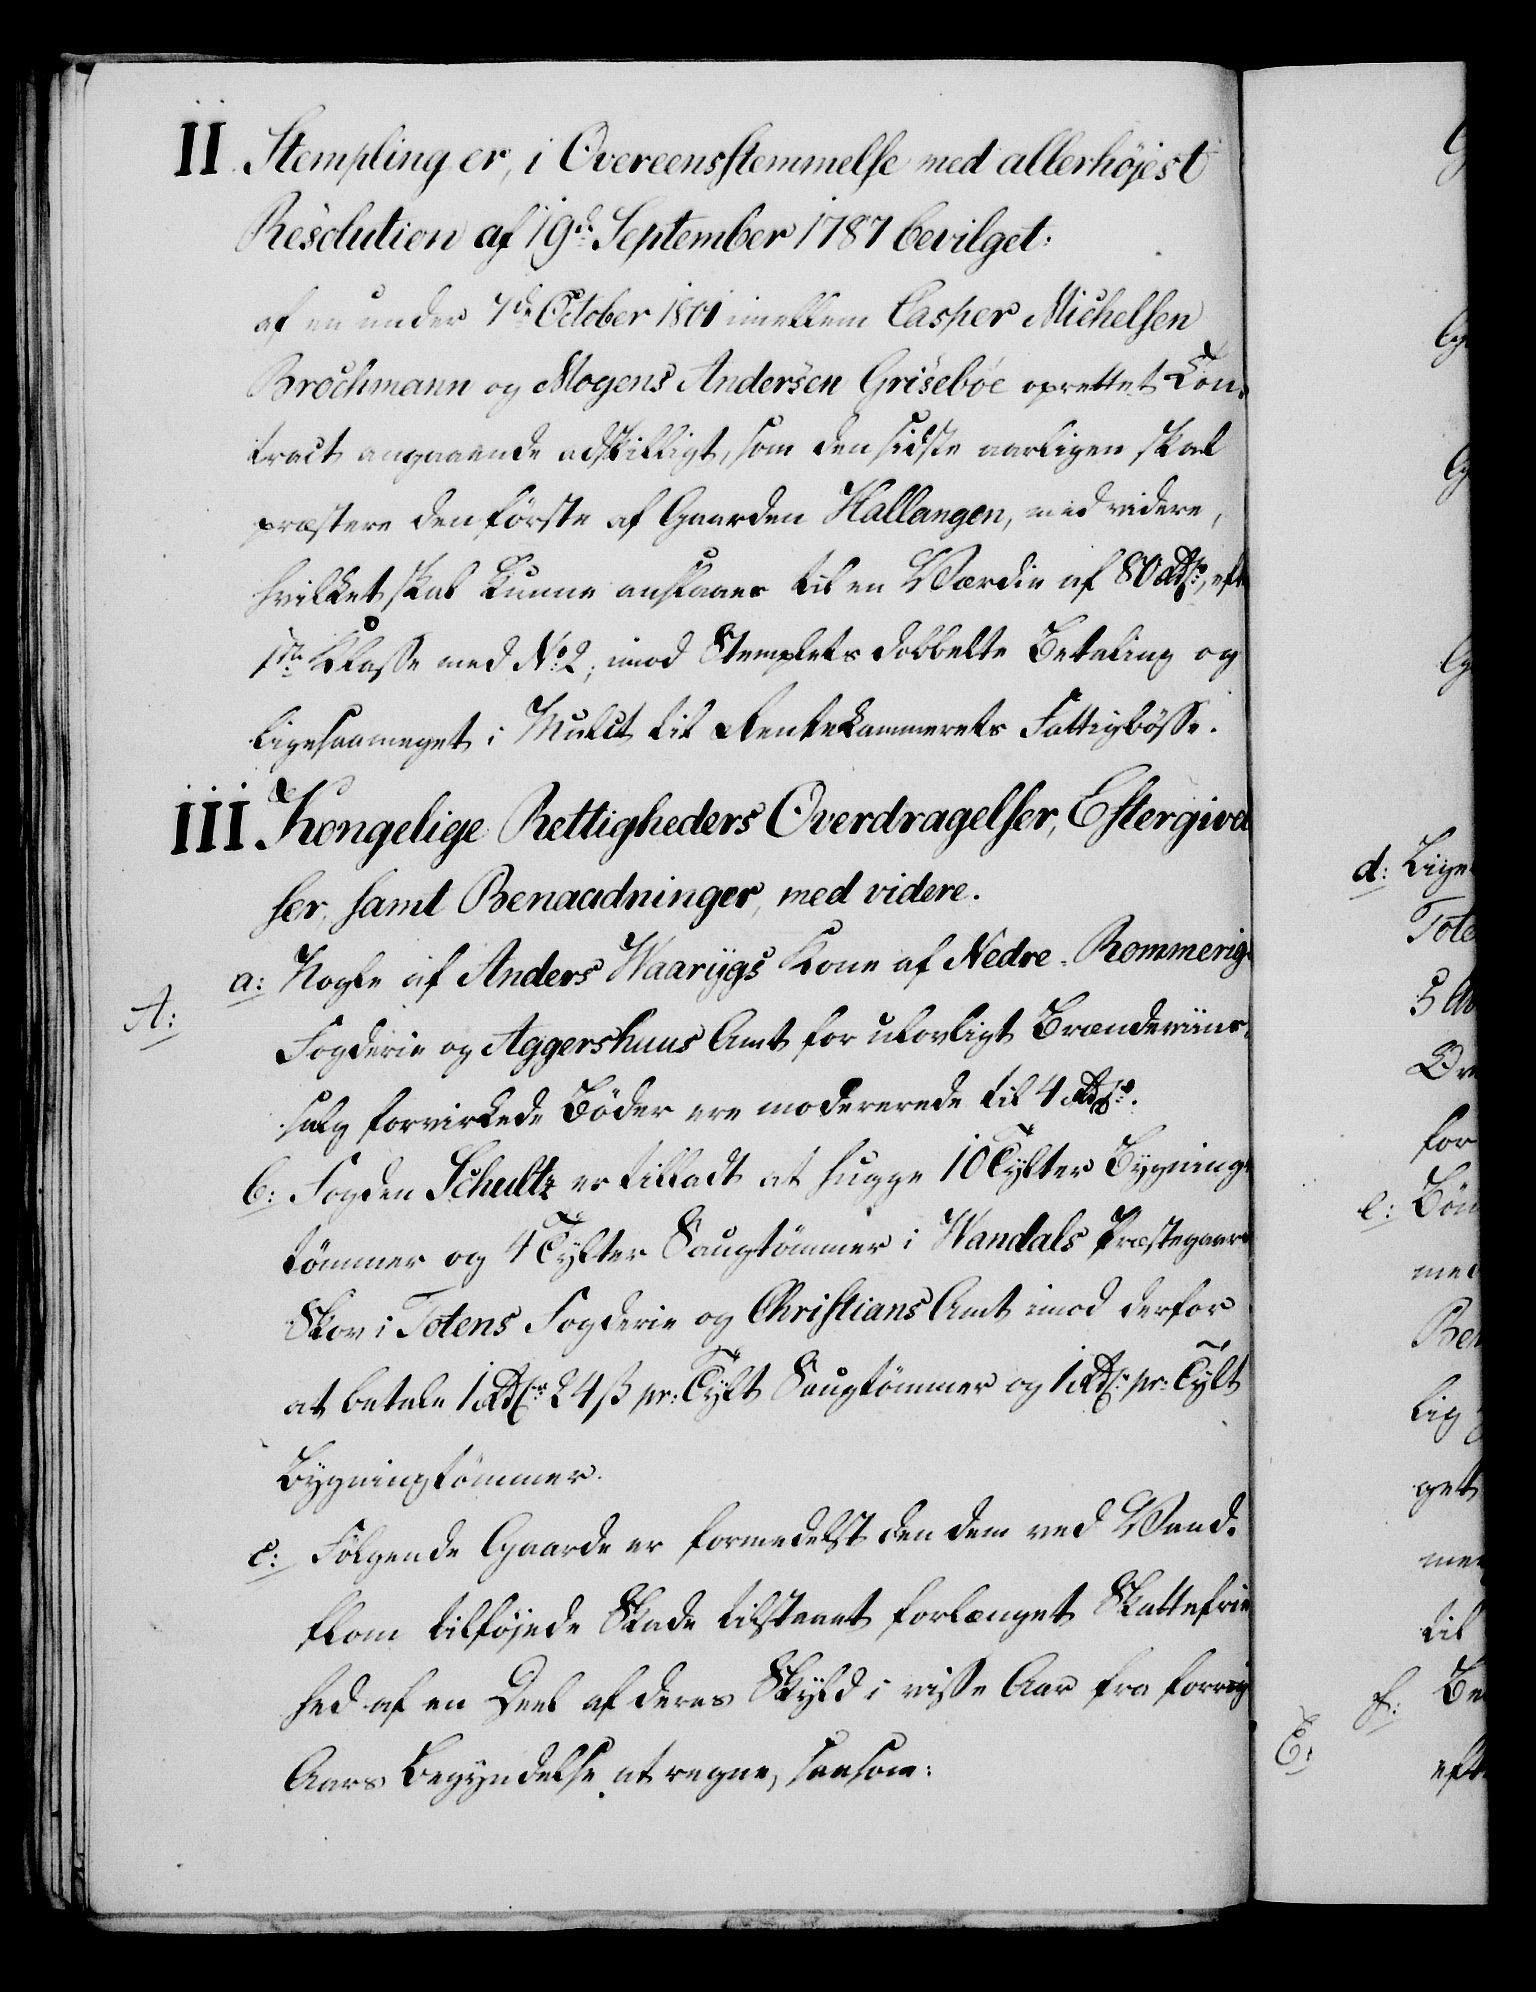 II. Stempling er, i Overeensstemmelse med allerhöjest
Resolution af 19de September 1787 bevilget:
af en under 7de October 1801 imellem Casper Michelsen
Brochmann og Mogens Andersen Grisebøe oprettet Con-
tract angaaende adskilligt, som den sidste aarligen skal
præstere den förste af Gaarden Hallangen, med videre,
hvilket skal kunne anslaaes til en Værdie af 80 Rdlr, eft
1ste Klasse med No 2, imod Stemplets dobbelte Betaling og
ligesaameget i Mulct til Rentekammerets Fattigbösse.
III. Kongelige Rettigheders Overdragelser, Eftergivel
ser, samt Benaadninger, med videre.
A:
a: Nogle af Anders Waarÿgs Kone af Nedre-Rommerig
Fogderie og Aggershuus Amt for ulovligt Brændeviins-
salg forvirkede Böder ere modererede til 4 Rdlr.
b: Fogden Schultz er tilladt at hugge 10 Tylter Bygnings
tömmer og 4 Tylter Saugtömmer i Wandals Præstegaards
Skov i Totens Fogderie og Christians Amt imod derfor
at betale 1 Rdlr 24 ß pr: Tylt Saugtömmer og 1 Rdlr pr: Tylt
Bygningstömmer.
c: Fölgende Gaarde er formedelst den dem ved Vand-
flom tilföjede Skade tilstaaet forlænget Skattefrie
hed af en Deel af deres Skyld i visse Aar fra forrig
Aars Begyndelse at regne, saasom:
d: Lige
Tote
5 Aa
for
e: Bön
med
Ben
lig
get
men
til
f: Be
E:
eft